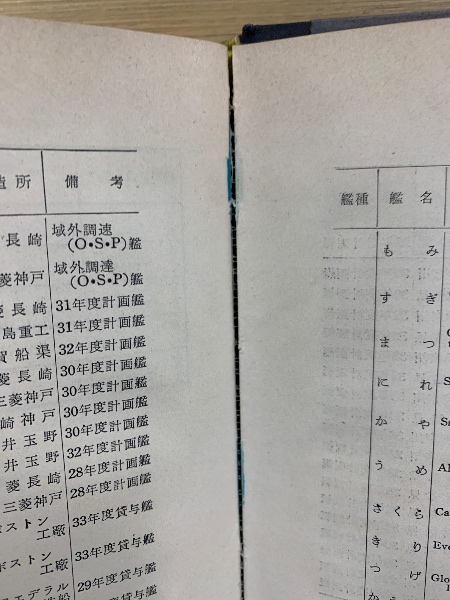 造所 備考
長崎 域外調速
(O・S・P)艦
菱神戸 域外調達
(O・S・P)艦
菱長崎 31年度計画艦
島重工 31年度計画艦
賀船渠 32年度計画艦
菱長崎 30年度計画艦
三菱神戸 30年度計画艦
崎神戸 30年度計画艦
井玉野 30年度計画艦
井玉野 32年度計画艦
菱長崎 28年度計画艦
三菱神戸 28年度計画艦
ボストン
工廠 33年度貸与艦
ボストン
工廠 33年度貸与艦
フェデラル
造船 29年度貸与艦
艦種 艦名
もみ
すぎ
まつ
にれ
かや Sa
うめ Al
さくら Ca
きり Eve
つげ Glo
か